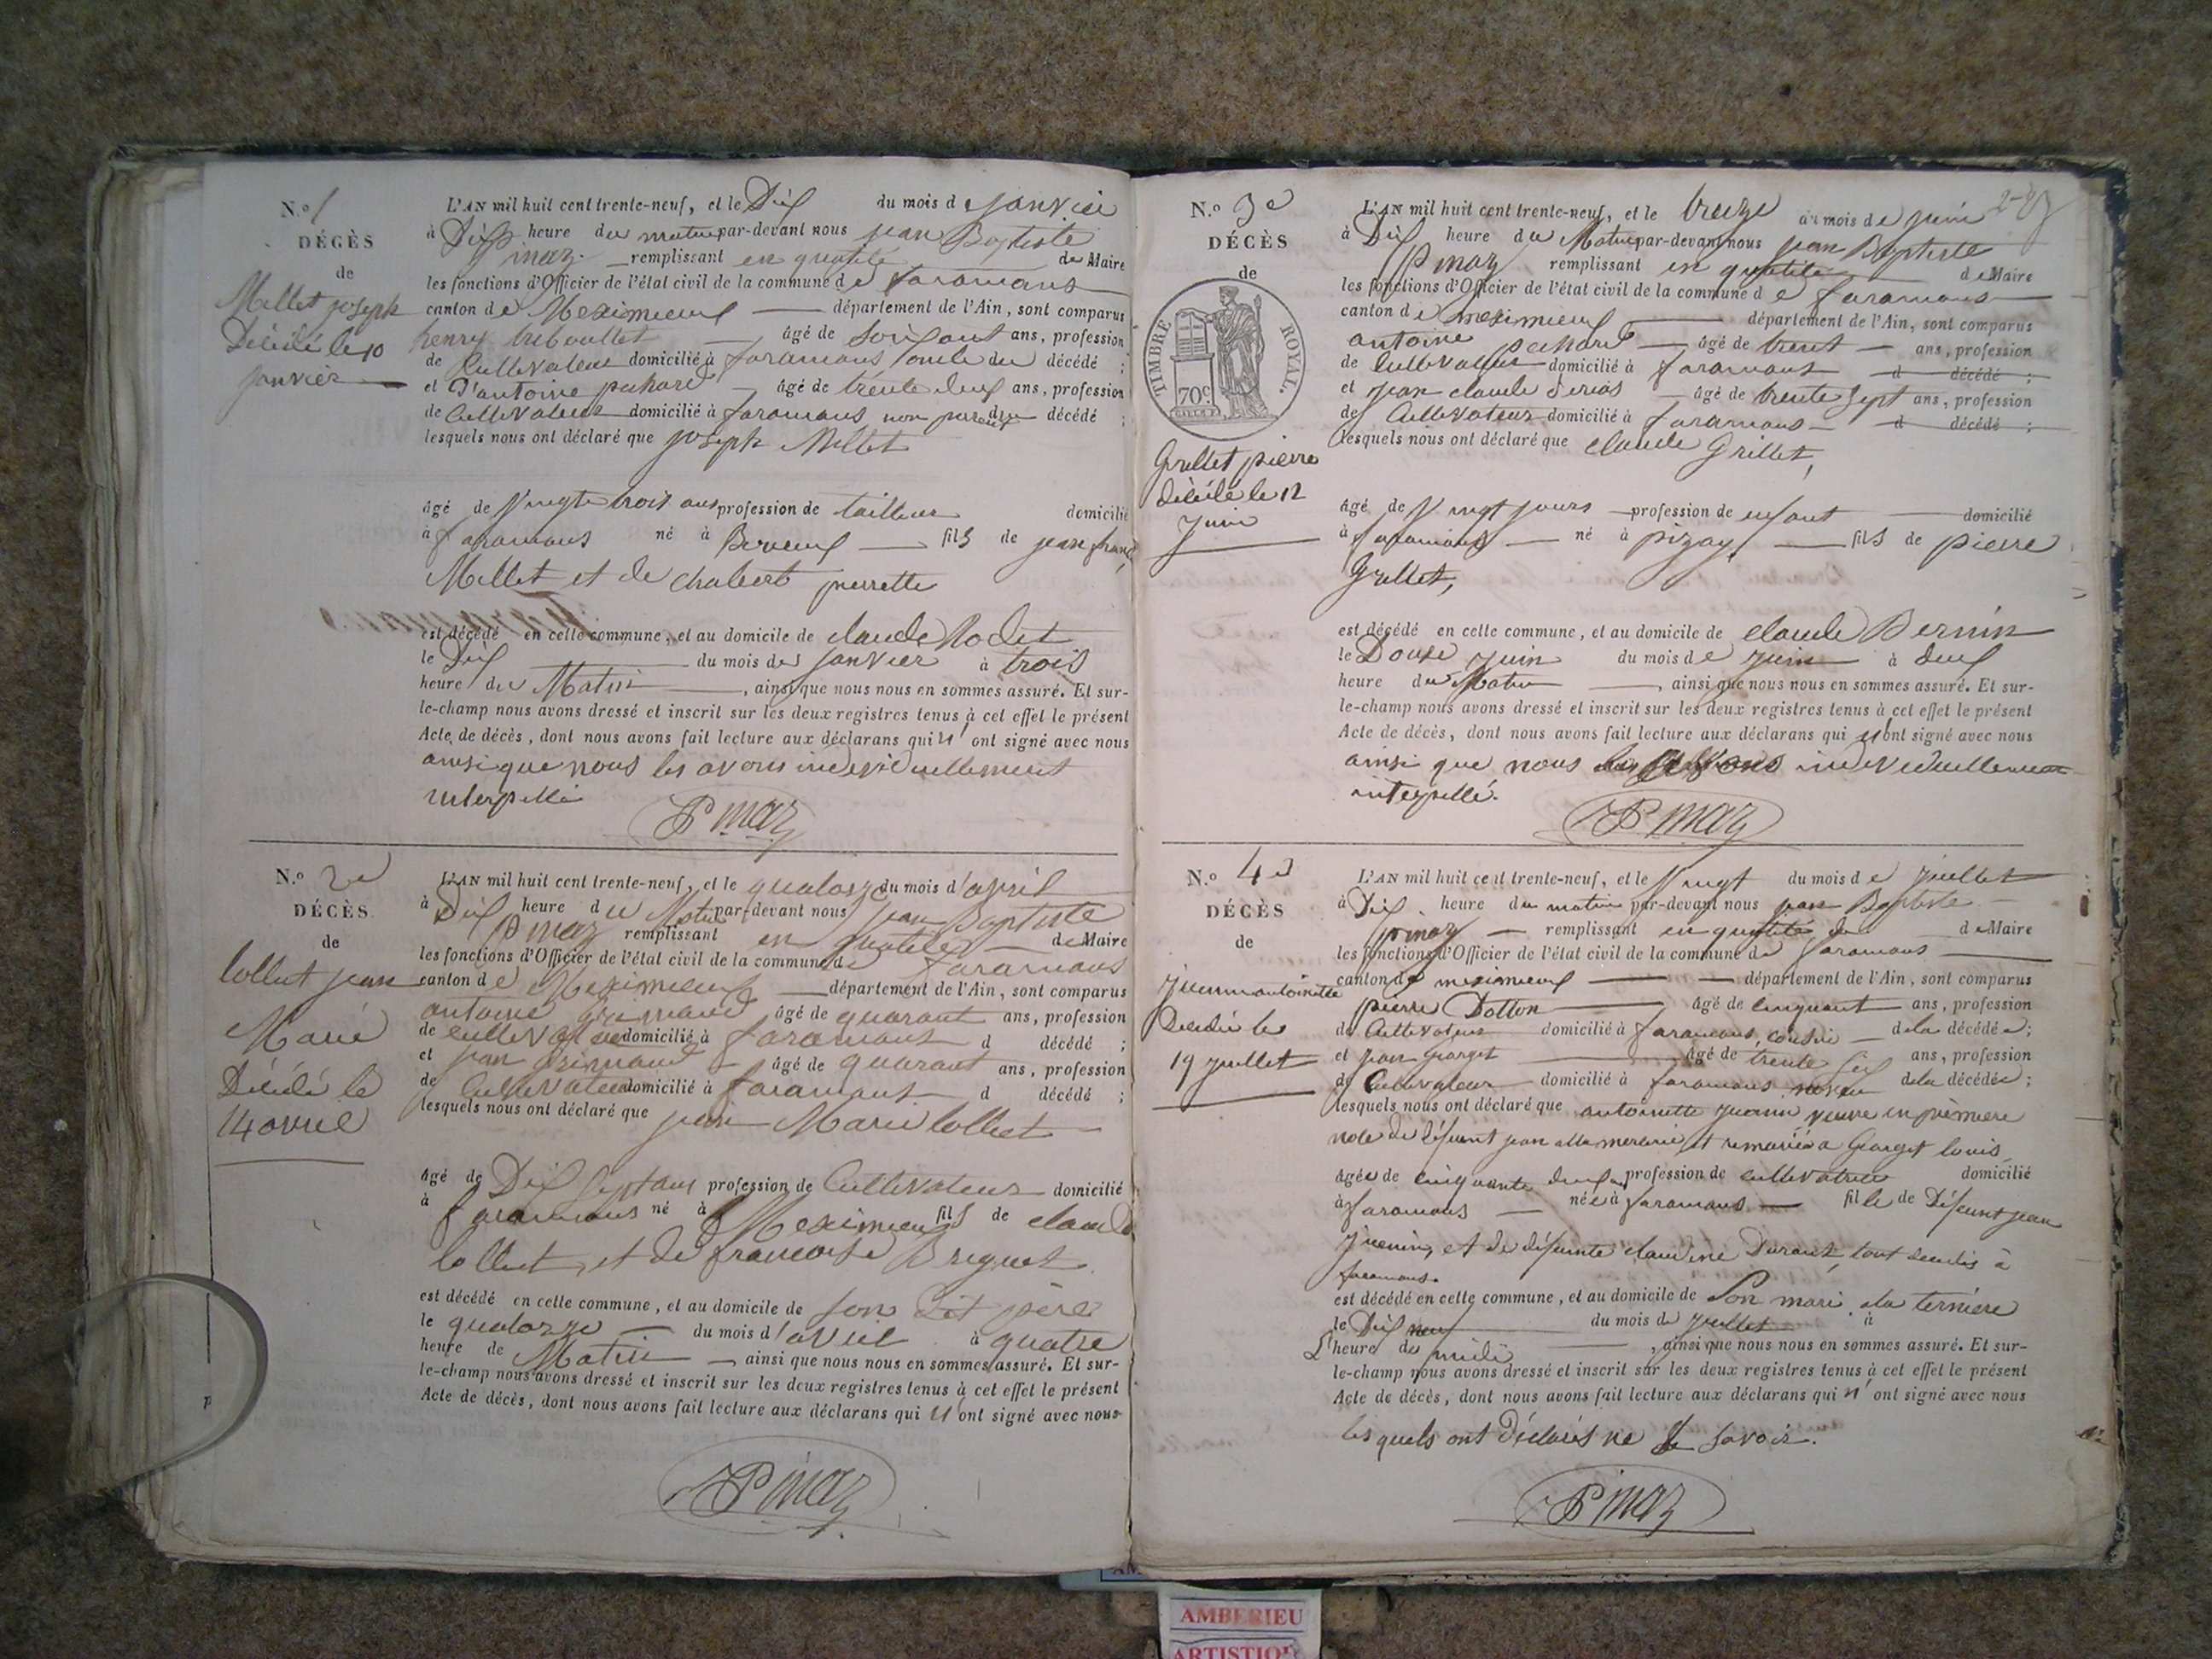 N.o 1
DÉCÈS
de
Millet joseph
Décédé le 10
janvier
L'AN mil huit cent trente-neuf, et le Dix du mois de janvier
à Dix heure du matin par-devant nous jean Baptiste
Pinaz remplissant en qualité de Maire
les fonctions d'Officier de l'état civil de la commune de faramans
canton de Meximieux département de l'Ain, sont comparus
henry âgé de Soixant ans, profession
de Cultivateur domicilié à faramans oncle du décédé ;
et D'antoine pahard âgé de trente deux ans, profession
de Cultivateur domicilié à faramans non parent du décédé ;
lesquels nous ont déclaré que joseph Millet
âgé de Vingt trois ans profession de tailleur domicilié
à faramans né à fils de jean franç
Millet et de chabert pierrette
est décédé en cette commune, et au domicile de claude Rodet
le Dix du mois de janvier à trois
heure du Matin, ainsi que nous nous en sommes assuré. Et sur-
le-champ nous avons dressé et inscrit sur les deux registres tenus à cet effet le présent
Acte de décès, dont nous avons fait lecture aux déclarans qui n'ont signé avec nous
ainsi que nous les avons individuellement
interpellé
Pinaz
N.o 2e
DÉCÈS
de
Collut jean
Marie
Décédé le
14 avril
L'AN mil huit cent trente-neuf, et le quatorze du mois d'avril
à Dix heure du Matin par-devant nous jean Baptiste
Pinaz remplissant en qualité de Maire
les fonctions d'Officier de l'état civil de la commune de faramans
canton de Meximieux département de l'Ain, sont comparus
antoine grimand âgé de quarant ans, profession
de cultivateur domicilié à faramans d décédé ;
et jean grimand âgé de quarant ans, profession
de Cultivateur domicilié à faramans d décédé ;
lesquels nous ont déclaré que jean Marie Collut
âgé de Dix Sept ans profession de Cultivateur domicilié
à faramans né à Meximieux fils de claude
Collut, et de francoise Briguet
est décédé en cette commune, et au domicile de son dit père
le quatorze du mois d'avril à quatre
heure de Matin ainsi que nous nous en sommes assuré. Et sur-
le-champ nous avons dressé et inscrit sur les deux registres tenus à cet effet le présent
Acte de décès, dont nous avons fait lecture aux déclarans qui n'ont signé avec nous
Pinaz
N.o 3e
DÉCÈS
de
TIMBRE ROYAL.
70c.
Grillet pierre
décédé le 12
Juin
L'AN mil huit cent trente-neuf, et le treize du mois de juin
à Dix heure du Matin par-devant nous jean Baptiste
Pinaz remplissant en qualité de Maire
les fonctions d'Officier de l'état civil de la commune de faramans
canton de meximieux département de l'Ain, sont comparus
antoine pahard âgé de trent ans, profession
de Cultivateur domicilié à faramans d décédé ;
et jean claude Serias âgé de trente sept ans, profession
de Cultivateur domicilié à faramans d décédé ;
lesquels nous ont déclaré que claude Grillet,
âgé de Vingt jours profession de enfant domicilié
à faramans né à pizay fils de pierre
Grillet,
est décédé en cette commune, et au domicile de claude Bernin
le Douze juin du mois de juin à deux
heure du Matin, ainsi que nous nous en sommes assuré. Et sur-
le-champ nous avons dressé et inscrit sur les deux registres tenus à cet effet le présent
Acte de décès, dont nous avons fait lecture aux déclarans qui n'ont signé avec nous
ainsi que nous les avons individuellement
interpellé.
Pinaz
N.o 4e
DÉCÈS
de
Juenin antoinette
Décédée le
19 juillet
L'AN mil huit cent trente-neuf, et le Vingt du mois de juillet
à Dix heure du matin par-devant nous jean Baptiste
pinaz remplissant en qualité de de Maire
les fonctions d'Officier de l'état civil de la commune de faramans
canton de meximieux département de l'Ain, sont comparus
pierre Dotton âgé de cinquant ans, profession
de Cultivateur domicilié à faramans, cousin de la décédée ;
et jean Giorget âgé de trente six ans, profession
de Cultivateur domicilié à faramans neveu de la décédée ;
lesquels nous ont déclaré que antoinette juenin veuve en premiere
noce de défunt jean et remariée a Giorget louis,
âgée de cinquante deux ans profession de cultivatrice domicilié
à faramans née à faramans fille de Défunt jean
juenin, et de défunte claudine Durand, tout décédés à
faramans.
est décédé en cette commune, et au domicile de Son mari, a la
le Dix neuf du mois de juillet à
heure de midi, ainsi que nous nous en sommes assuré. Et sur-
le-champ nous avons dressé et inscrit sur les deux registres tenus à cet effet le présent
Acte de décès, dont nous avons fait lecture aux déclarans qui n'ont signé avec nous
les quels ont déclarés ne le savoir.
Pinaz
AMBERIEU
ARTISTIQ